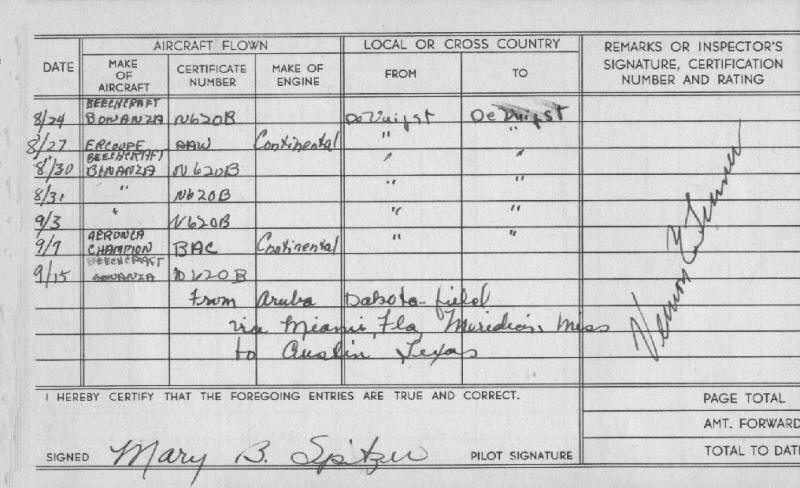 AIRCRAFT FLOWN LOCAL OR CROSS COUNTRY REMARKS OR INSPECTOR'S SIGNATURE, CERTIFICATION NUMBER AND RATING
DATE MAKE OF AIRCRAFT CERTIFICATE NUMBER MAKE OF ENGINE FROM TO
8/24 BEECHCRAFT BONANZA N620B DeVuijst DeVuijst
8/27 ERCOUPE AAW Continental " "
8/30 BEECHCRAFT BONANZA N620B " "
8/31 " N620B " "
9/3 " N620B " "
9/7 AERONCA CHAMPION BAC Continental " "
9/15 BEECHCRAFT BONANZA N620B
From Aruba Dakota field
via Miami, Fla, Meridian, Miss
to Austin Texas
Vernon
I HEREBY CERTIFY THAT THE FOREGOING ENTRIES ARE TRUE AND CORRECT.
PAGE TOTAL
AMT. FORWARD
SIGNED Mary B. Spitzer PILOT SIGNATURE
TOTAL TO DATE